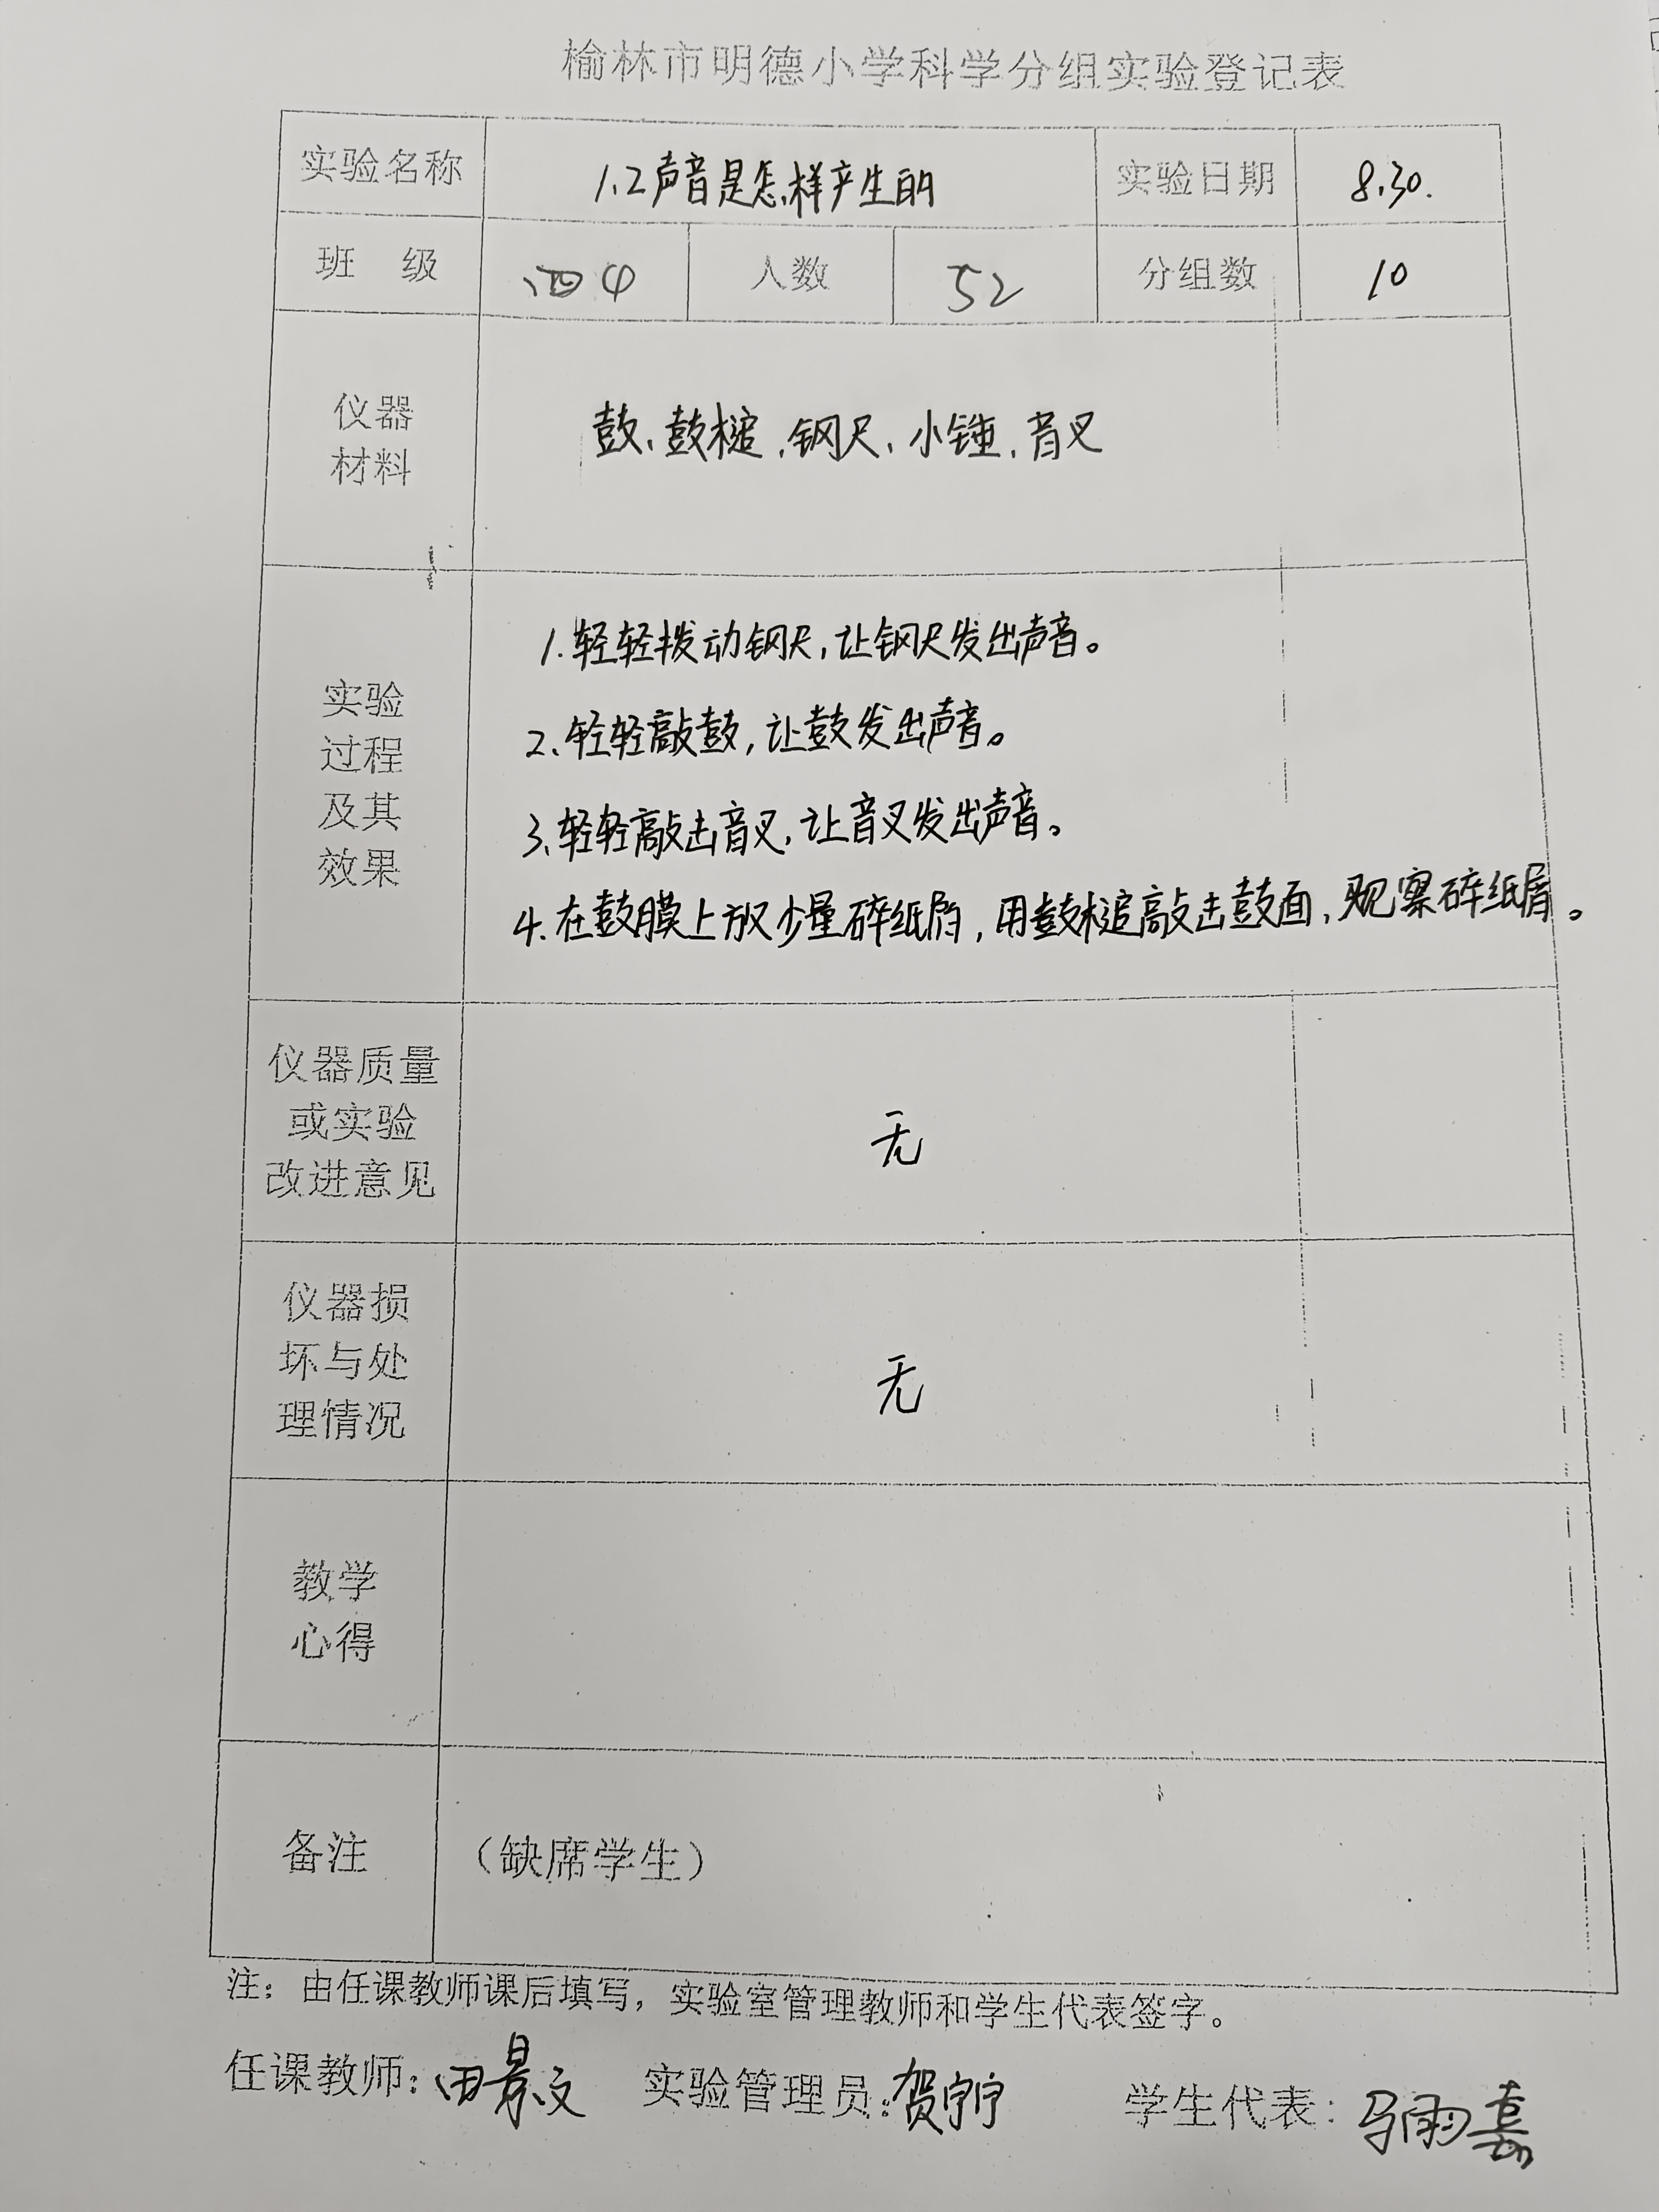 榆林市明德小学科学分组实验登记表
实验名称 1.2声音是怎样产生的 实验日期 8.30.
班 级 四4 人数 52 分组数 10
仪器
材料
鼓、鼓槌、钢尺、小锤、音叉
实验
过程
及其
效果
1.轻轻拨动钢尺,让钢尺发出声音。
2、轻轻敲鼓,让鼓发出声音。
3、轻轻敲击音叉,让音叉发出声音。
4.在鼓膜上放少量碎纸屑,用鼓槌敲击鼓面,观察碎纸屑。
仪器质量
或实验
改进意见
无
仪器损
坏与处
理情况
无
教学
心得
备注 (缺席学生)
注:由任课教师课后填写,实验室管理教师和学生代表签字。
任课教师:田景文 实验管理员:贺宁宁 学生代表:马雨嘉